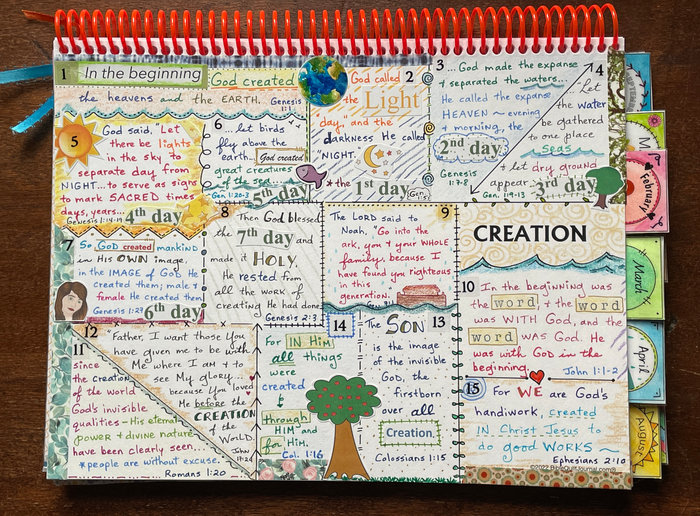 1 In the beginning
God created
the heavens and the EARTH.
Genesis
1:1
2
God called
the
Light
day," and the
darkness He called
"NIGHT.
* the 1st day
3
...God made the expanse
+ separated the waters...
He called the expanse
HEAVEN ~ evening
+ morning, the
2nd day
Genesis
1:7-8
4
Let
the water
be gathered
to one place
Seas
+ let dry ground
appear
Gen. 1:9-13
3rd day
5
God said, "Let
there be lights
in the sky to
separate day from
NIGHT...to serve as signs
to mark SACRED times
days, years...
Genesis 1:14-19
4th day
6
...let birds
fly above the
earth...
God created
great creatures
of the sea...
Gen. 1:20-23
5th day
7
So GOD created mankind
in His OWN image,
in the IMAGE of God He
created them; male +
female He created them
Genesis 1:27
6th day
8
Then God blessed
the 7th day and
made it HOLY.
He rested from
all the work of
creating He had done
Genesis 2:3
9
The LORD said to
Noah, "Go into the
ark, you + your WHOLE
family, because I
have found you righteous
in this
generation.
CREATION
10
In the beginning was
the word, + the word
was WITH God, and the
word was God. He
was with God in the
beginning.
John 1:1-2
11
since
the creation
of the world
God's invisible
qualities – His eternal
power + divine nature
have been clearly seen...
*people are without excuse.
Romans 1:20
12
Father, I want those You
have given me to be with
Me where I am + to
see My glory...
because You loved
Me before the
CREATION
of the
World.
John
17:24
13
The SON
is the image
of the invisible
GOD, the
firstborn
over all
Creation.
Colossians 1:15
14
For IN Him
all things
were
created
through
HIM and
for Him.
Col. 1:16
15
For WE are God's
handiwork, created
IN Christ Jesus to
do good WORKS ~
Ephesians 2:10
February
March
April
AUGUST